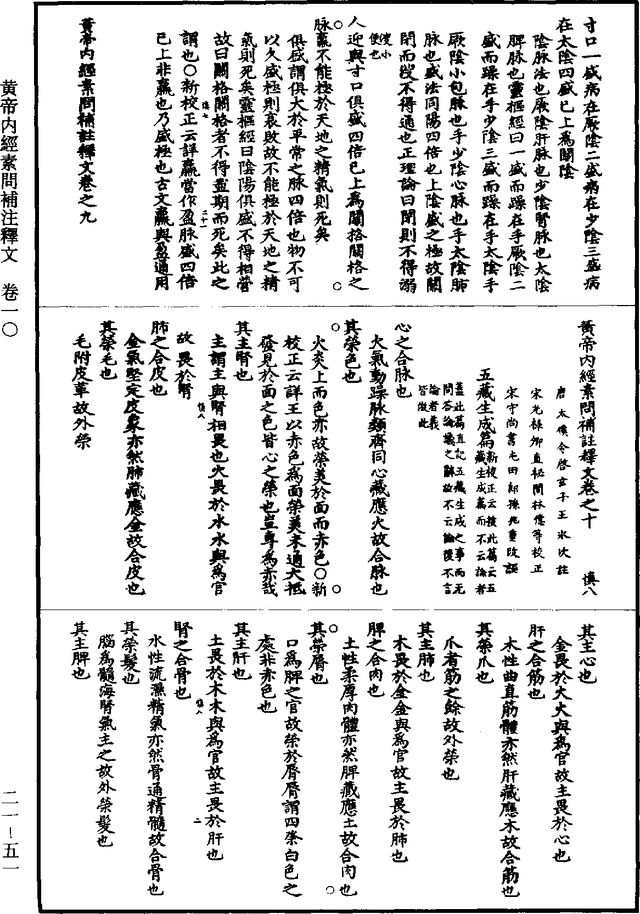 寸口一盛病在厥陰二盛病在少陰三盛病
在太陰四盛已上爲關陰
陰脉法也厥陰肝脉也少陰腎脉也太陰
脾脉也靈樞經曰一盛而躁在手厥陰二
盛而躁在手少陰三盛而躁在手太陰手
厥陰小包脉也手少陰心脉也手太陰肺
脉也盛法同陽四倍也上陰盛之極故關
閉而溲不得通也正理論曰閉則不得溺
溲小便也
人迎與寸口俱盛四倍已上爲關格關格之
脉羸不能極於天地之精氣則死矣
俱盛謂俱大於平常之脉四倍也物不可
以久盛極則衰敗故不能極於天地之精
氣則死矣靈樞經曰陰陽俱盛不得相營
故曰關格關格者不得盡期而死矣此之
謂也○新校正云詳羸當作盈脉盛四倍
已上非羸也乃盛極也古文羸與盈通用
黃帝內經素問補註釋文卷之九
黃帝內經素問補註釋文卷之十 慎八
唐太僕令啓玄子王氷次註
宋光祿卿直秘閣林億等校正
宋守尚書屯田郎孫兆重改誤
五藏生成篇新校正云按此篇云五藏生成篇而不云論者
蓋此篇直記五藏生成之事而无
問荅論議之辭故不云論後不言
論者義皆倣此
心之合脉也
火氣動躁脉類齊同心藏應火故合脉也
其榮色也
火炎上而色赤故榮美於面而赤色○新
校正云詳王以赤色爲面榮美未通大抵
發見於面之色皆心之榮也豈專爲赤哉
其主腎也
主謂主與腎相畏也火畏於水水與爲官
故畏於腎
肺之合皮也
金氣堅定皮象亦然肺藏應金故合皮也
其榮毛也
毛附皮革故外榮
其主心也
金畏於火火與爲官故主畏於心也
肝之合筋也
木性曲直筋體亦然肝藏應木故合筋也
其榮爪也
爪者筋之餘故外榮也
其主肺也
木畏於金金與爲官故主畏於肺也
脾之合肉也
土性柔厚肉體亦然脾藏應土故合肉也
其榮脣也
口爲脾之官故榮於脣脣謂四際白色之
處非赤色也
其主肝也
土畏於木木與爲官故主畏於肝也
腎之合骨也
水性流濕精氣亦然骨通精髓故合骨也
其榮髮也
腦爲髓海腎氣主之故外榮髮也
其主脾也
黄帝内經素問補注釋文 卷一〇
二一—五一